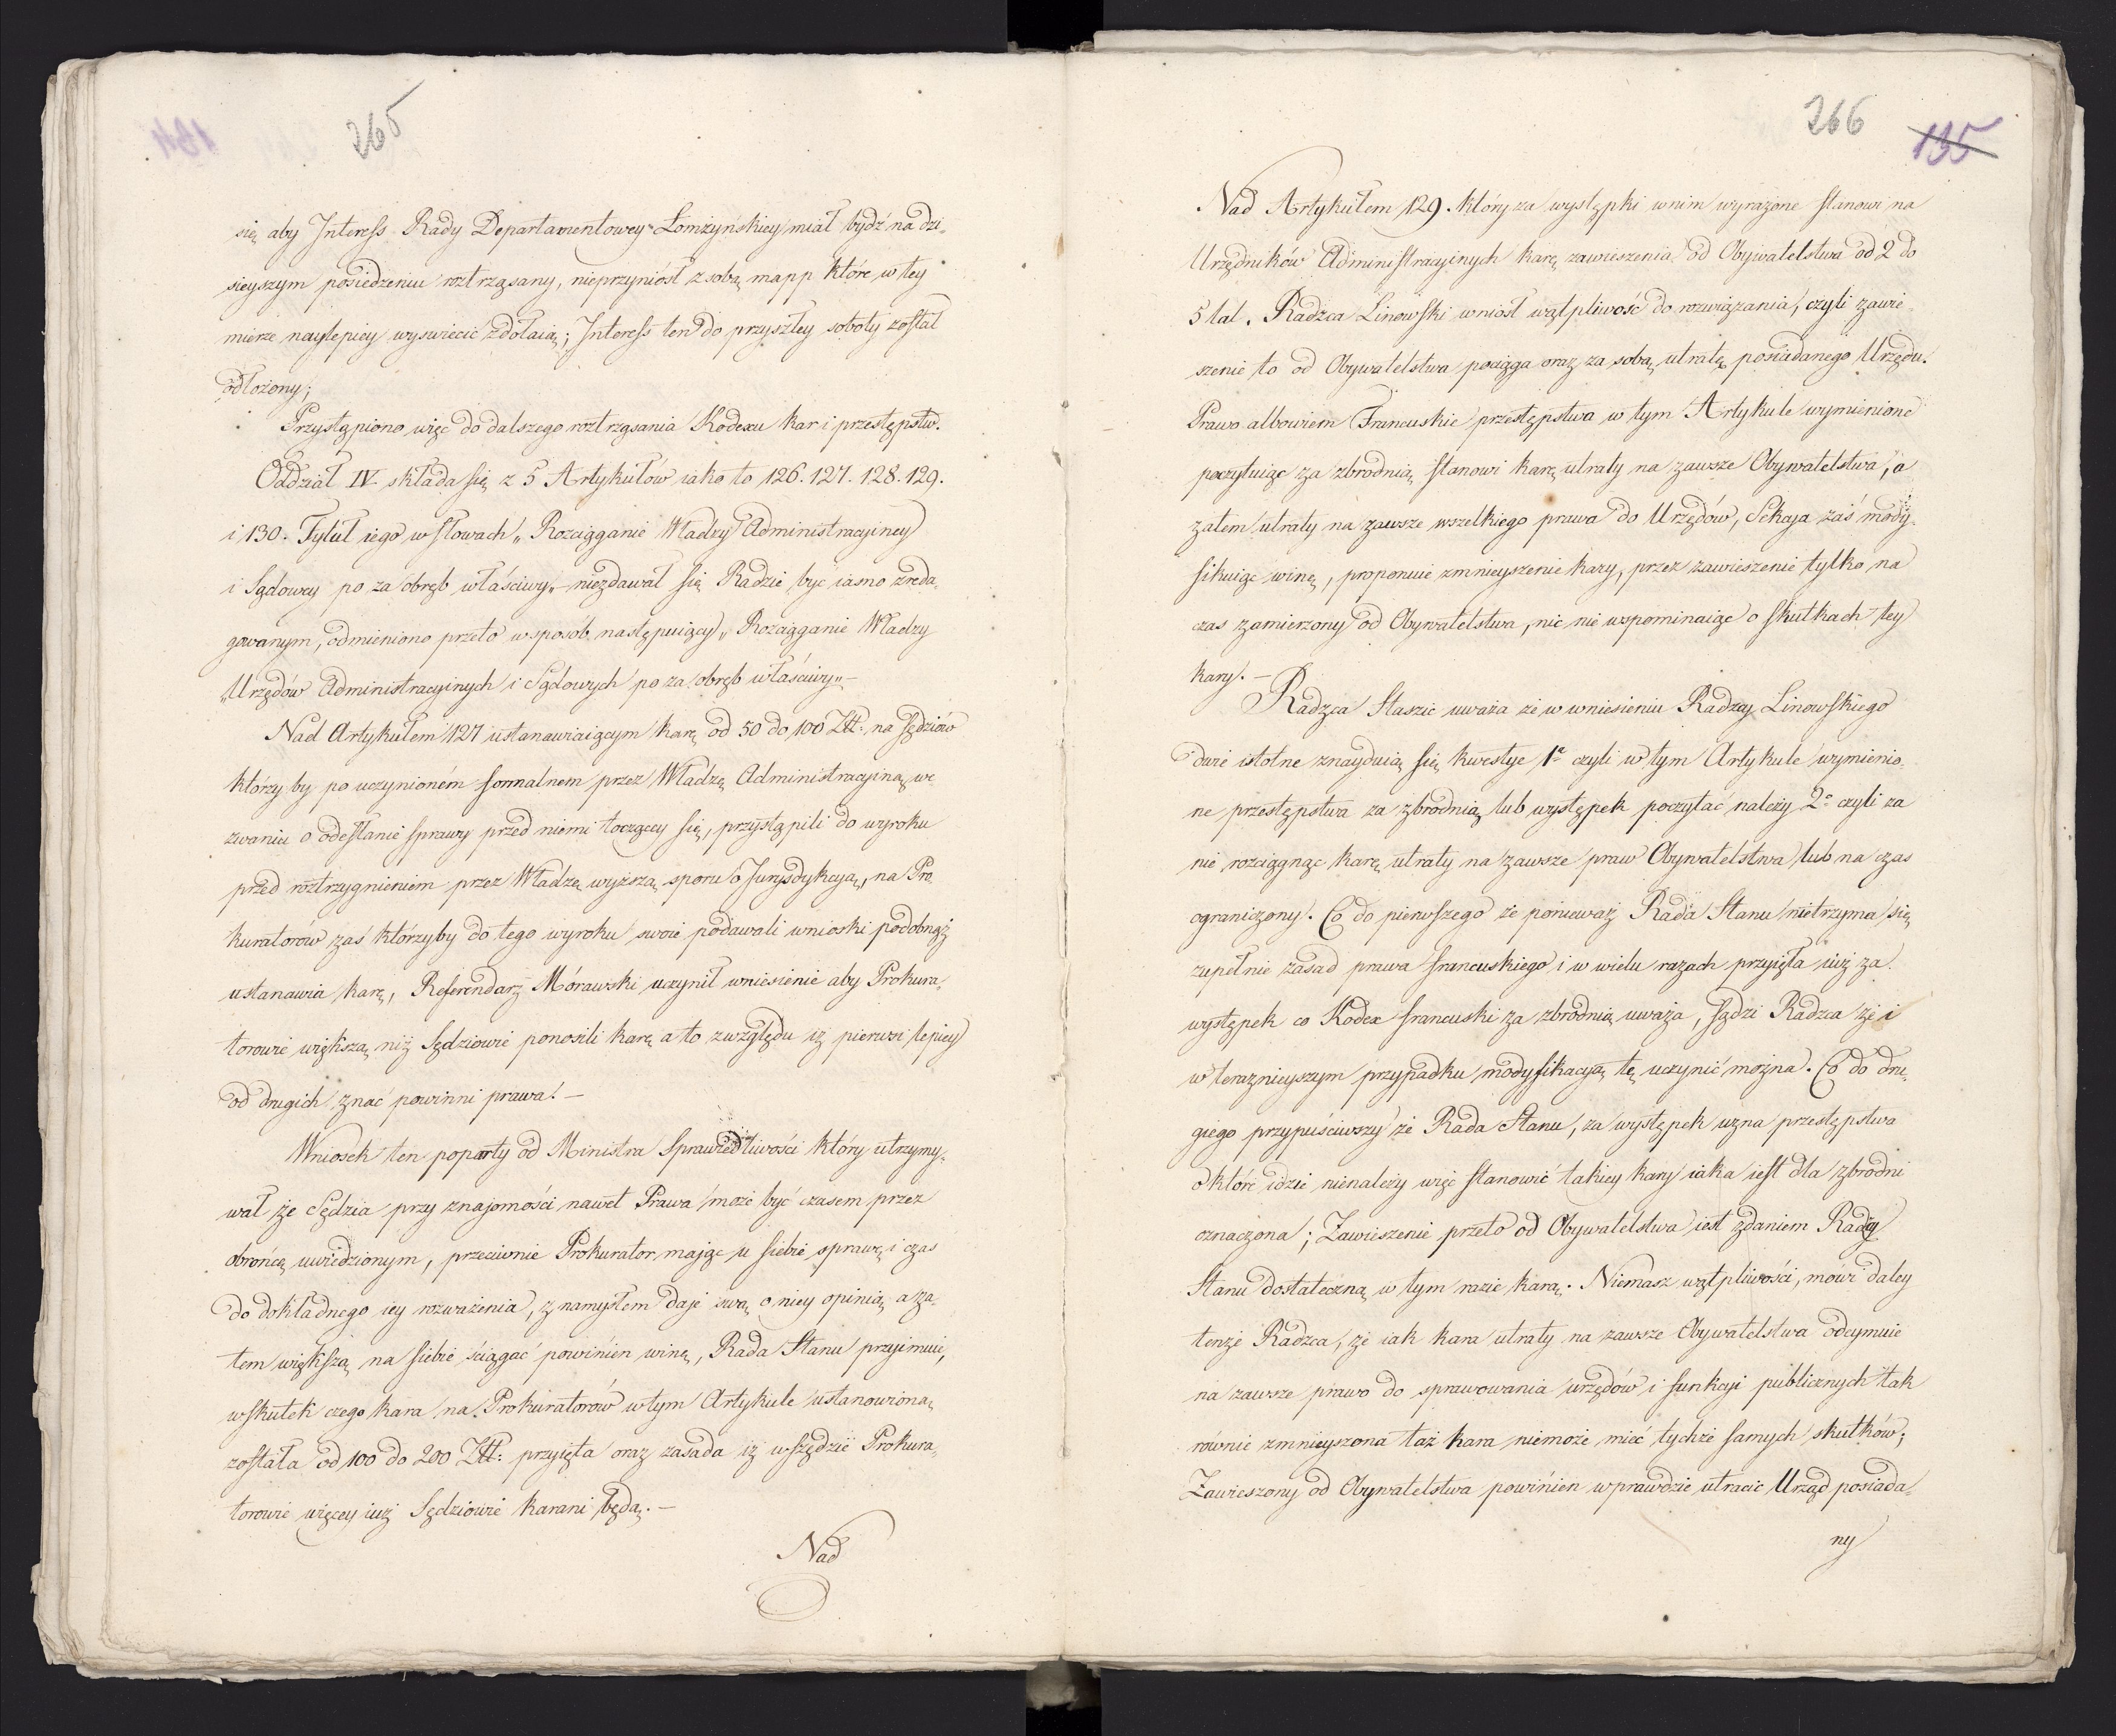 265
się aby Interess Rady Departamentowey Łomżyńskiey miał bydź na dzi-
sieyszym posiedzeniu roztrząsany, nieprzyniósł z sobą mapp które w tey
mierze naylepiey wyswiecić zdołaią; Interess ten do przyszłey soboty został
odłożony;
Przystąpiono więc do dalszego roztrząsania Kodexu kar i przestępstw.
Oddział IV. składa się z 5 Artykułów iako to 126. 127. 128. 129.
i 130. Tytuł iego w słowach „Rozciąganie Władzy Administracyiney
i Sądowey po za obręb właściwy„ – niezdawał się Radzie być iasno zreda-
gowanym, odmieniono przeto w sposób następuiący „Rozciąganie Władzy
„Urzędów Administracyinych i Sądowych po za obręb właściwy„ –
Nad Artykułem 127 ustanawiaiącym karę od 50 do 100 Złł: na sędziów
którzy by po uczynioném formalnem przez Władzę Administracyiną we
zwaniu o odesłanie sprawy przed niemi toczącey się, przystąpili do wyroku
przed roztrzygnieniem przez Władzę wyższą sporu o Jurysdykcyą, na Pro-
kuratorów zaś którzyby do tego wyroku swoie podawali wnioski podobnąż
ustanawia karę, Referendarz Mórawski uczynił wniesienie aby Prokura-
torowie większą niż Sędziowie ponosili karę a to z względu iż pierwsi lepiey
od drugich znać powinni prawa. –
Wniosek ten poparty od Ministra Sprawiedliwości który utrzymy-
wał że Sędzia przy znajomości nawet Prawa może być czasem przez
obrońcę uwiedzionym, przeciwnie Prokurator mając u siebie sprawę i czas
do dokładnego iey rozważenia, z namysłem daje swą o niey opinią a za-
tem większą na siebie ściągać powinien winę, Rada Stanu przyimuie,
w skutek czego kara na Prokuratorów w tym Artykule ustanowioną
została od 100 do 200 Złł: przyięta oraz zasada iż wszędzie Prokura-
torowie więcey iuż Sędziowie karani będą. –
Nad
266
135
Nad Artykułem 129. który za występki w nim wyrażone stanowi na
Urzędników Administracyinych karę zawieszenia od Obywatelstwa od 2 do
5 lat. Radzca Linowski wniósł wątpliwość do rozwiązania, czyli zawie-
szenie to od Obywatelstwa pociąga oraz za sobą utratę posiadanego Urzędu.
Prawo albowiem Francuskie przestępstwa w tym Artykule wymienione
poczytuiąc za zbrodnią stanowi karę utraty na zawsze Obywatelstwa, a
zatem utraty na zawsze wszelkiego prawa do Urzędów, Sekcya zaś mody-
fikuiąc winę, proponuie zmnieyszenie kary, przez zawieszenie tylko na
czas zamierzony od Obywatelstwa, nic nie wspominaiąc o skutkach tey
kary. –
Radzca Staszic uważa że w wniesieniu Radzcy Linowskiego
dwie istotne znayduią się kwestye 1e czyli w tym Artykule wymienio-
ne przestępstwa za zbrodnią lub występek poczytać należy 2e czyli za
nie rozciągnąć karę utraty na zawsze praw Obywatelstwa lub na czas
ograniczony. Co do pierwszego że ponieważ Rada Stanu nietrzyma się
zupełnie zasad prawa francuskiego i w wielu razach przyięła iuż za
występek co Kodex francuski za zbrodnią uważa, sądzi Radzca że i
w teraznieyszym przypadku modyfikacyą tę uczynić można. Co do dru-
giego przypuściwszy że Rada Stanu, za występek uzna przestępstwa
o które idzie nienależy więc stanowić takiey kary iaka iest dla zbrodni
oznaczona; Zawieszenie przeto od Obywatelstwa iest zdaniem Radcy
Stanu dostateczną w tym razie karą. Niemasz wątpliwości, mówi daley
tenże Radzca, że iak kara utraty na zawsze Obywatelstwa odeymuie
na zawsze prawo do sprawowania urzędów i funkcyi publicznych tak
równie zmnieyszona taż kara niemoże mieć tychże samych skutków;
Zawieszony od Obywatelstwa powinien wprawdzie utracić Urząd posiada-
ny